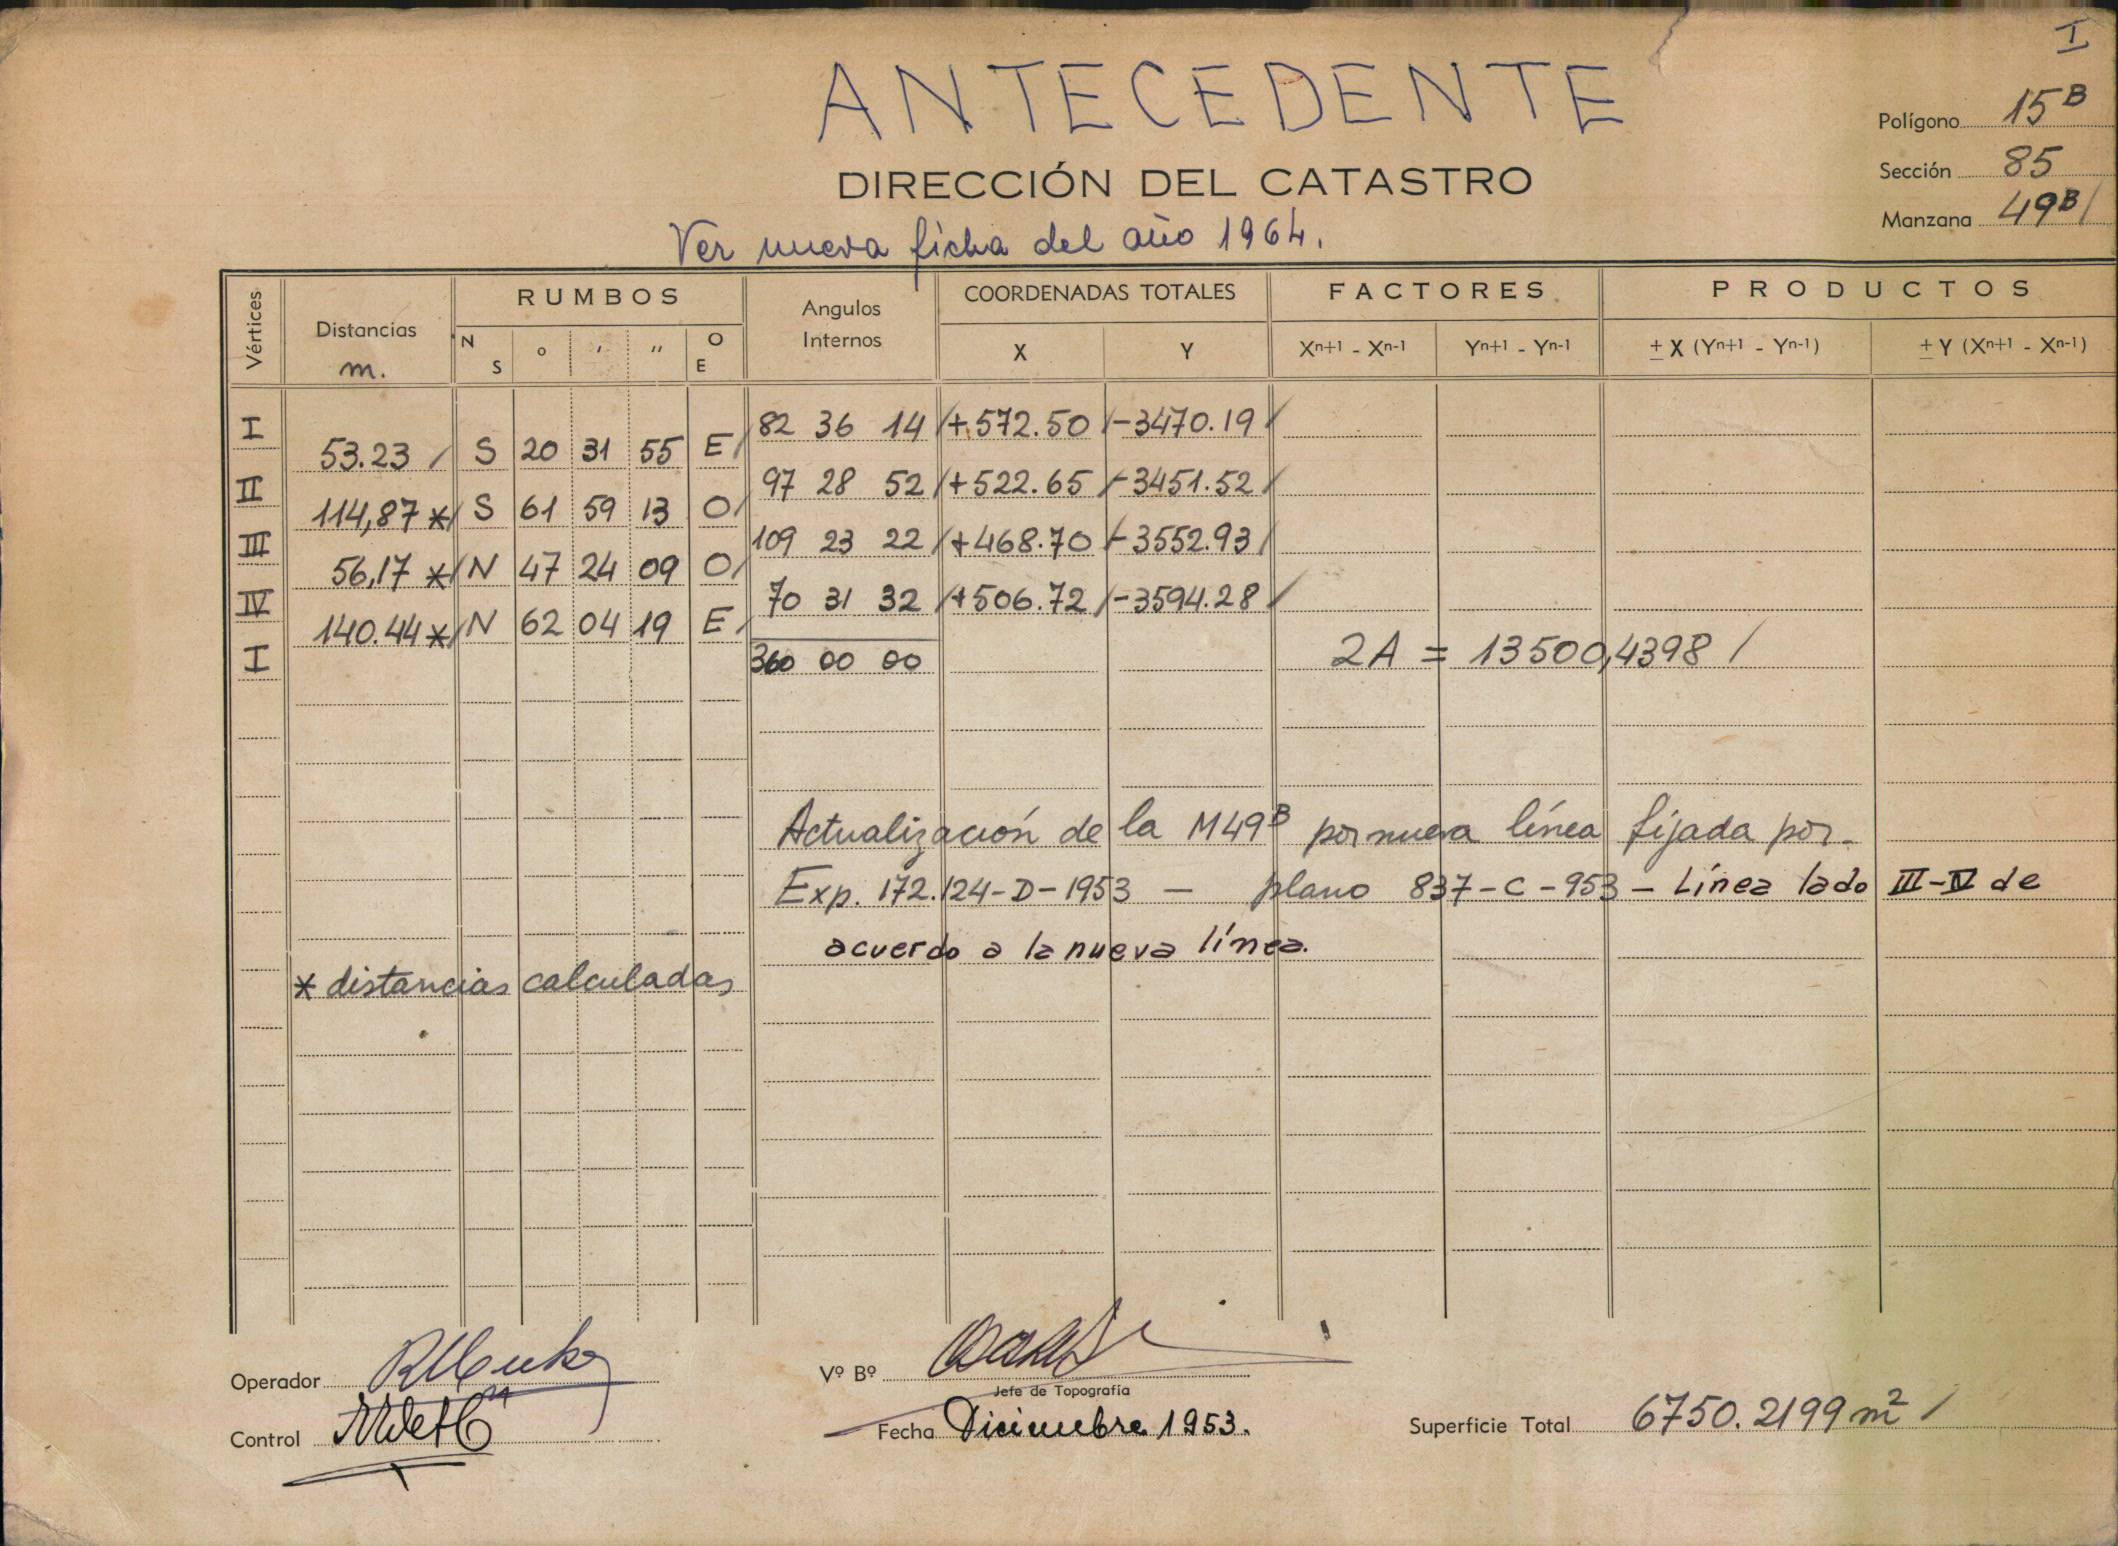 I
ANTECEDENTE
Polígono 15B
DIRECCIÓN DEL CATASTRO
Sección 85
Manzana 49B/
Ver nueva ficha del año 1964.
Vértices Distancias m. RUMBOS Angulos Internos COORDENADAS TOTALES FACTORES PRODUCTOS
N S ° ′ ″ O E X Y Xn+1 - Xn-1 Yn+1 - Yn-1 ± X (Yn+1 - Yn-1) ± Y (Xn+1 - Xn-1)
I 82 36 14 / +572.50 / -3470.19 /
53.23 / S 20 31 55 E /
II 97 28 52 / +522.65 / -3451.52 /
114,87 * / S 61 59 13 O /
III 109 23 22 / +468.70 / -3552.93 /
56,17 * / N 47 24 09 O /
IV 70 31 32 / +506.72 / -3594.28 /
140.44 * / N 62 04 19 E /
I 360 00 00 2A = 13500,4398 /
Actualización de la M49B por nueva línea fijada por.
Exp. 172.124-D-1953 — plano 837-C-953 - Línea lado III-IV de
acuerdo a la nueva línea.
* distancias calculadas
Operador
Vº Bº
Jefe de Topografía
Control
Fecha Diciembre 1953.
Superficie Total 6750.2199 m² /